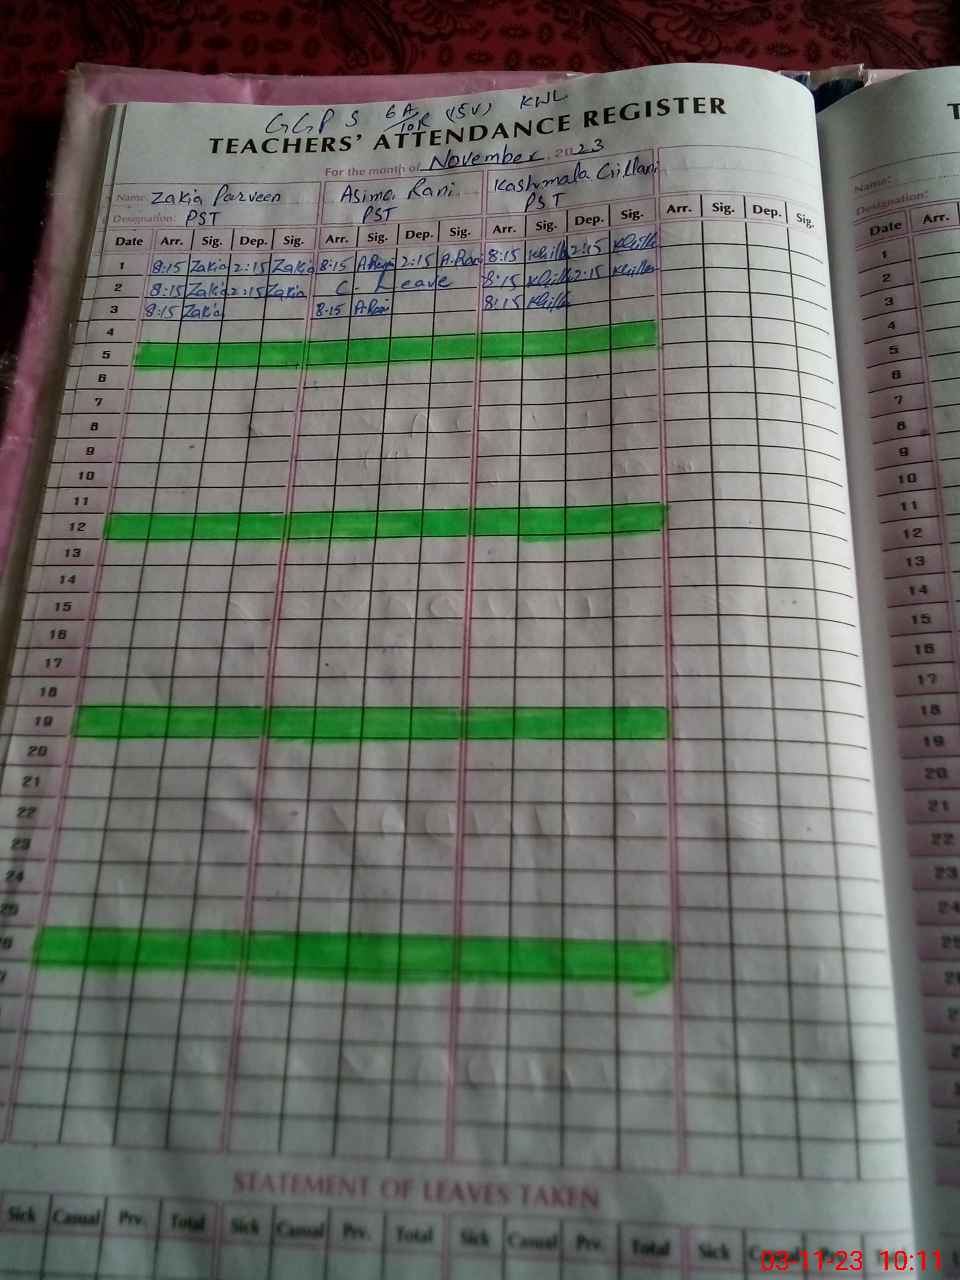 GGPS 6A/10R (15V) KWL
TEACHERS' ATTENDANCE REGISTER
For the month of November 2023
Name: Zakia Parveen Asima Rani Kashmala Gillani
Designation: PST PST PST
Date Arr. Sig. Dep. Sig. Arr. Sig. Dep. Sig. Arr. Sig. Dep. Sig. Arr. Sig. Dep. Sig.
1 8:15 Zakia 2:15 Zakia 8:15 A.Rani 2:15 A.Rani 8:15 2:15
2 8:15 Zakia 2:15 Zakia C. Leave 8:15 2:15
3 8:15 Zakia 8:15 A.Rani 8:15
4
5
6
7
8
9
10
11
12
13
14
15
16
17
18
19
20
21
22
23
24
25
STATEMENT OF LEAVES TAKEN
Sick Casual Prv. Total Sick Casual Prv. Total Sick Casual Prv. Total Sick
Name:
Designation:
Date Arr.
1
2
3
4
5
6
7
8
9
10
11
12
13
14
15
16
17
18
19
20
21
22
23
24
25
03-11-23 10:11